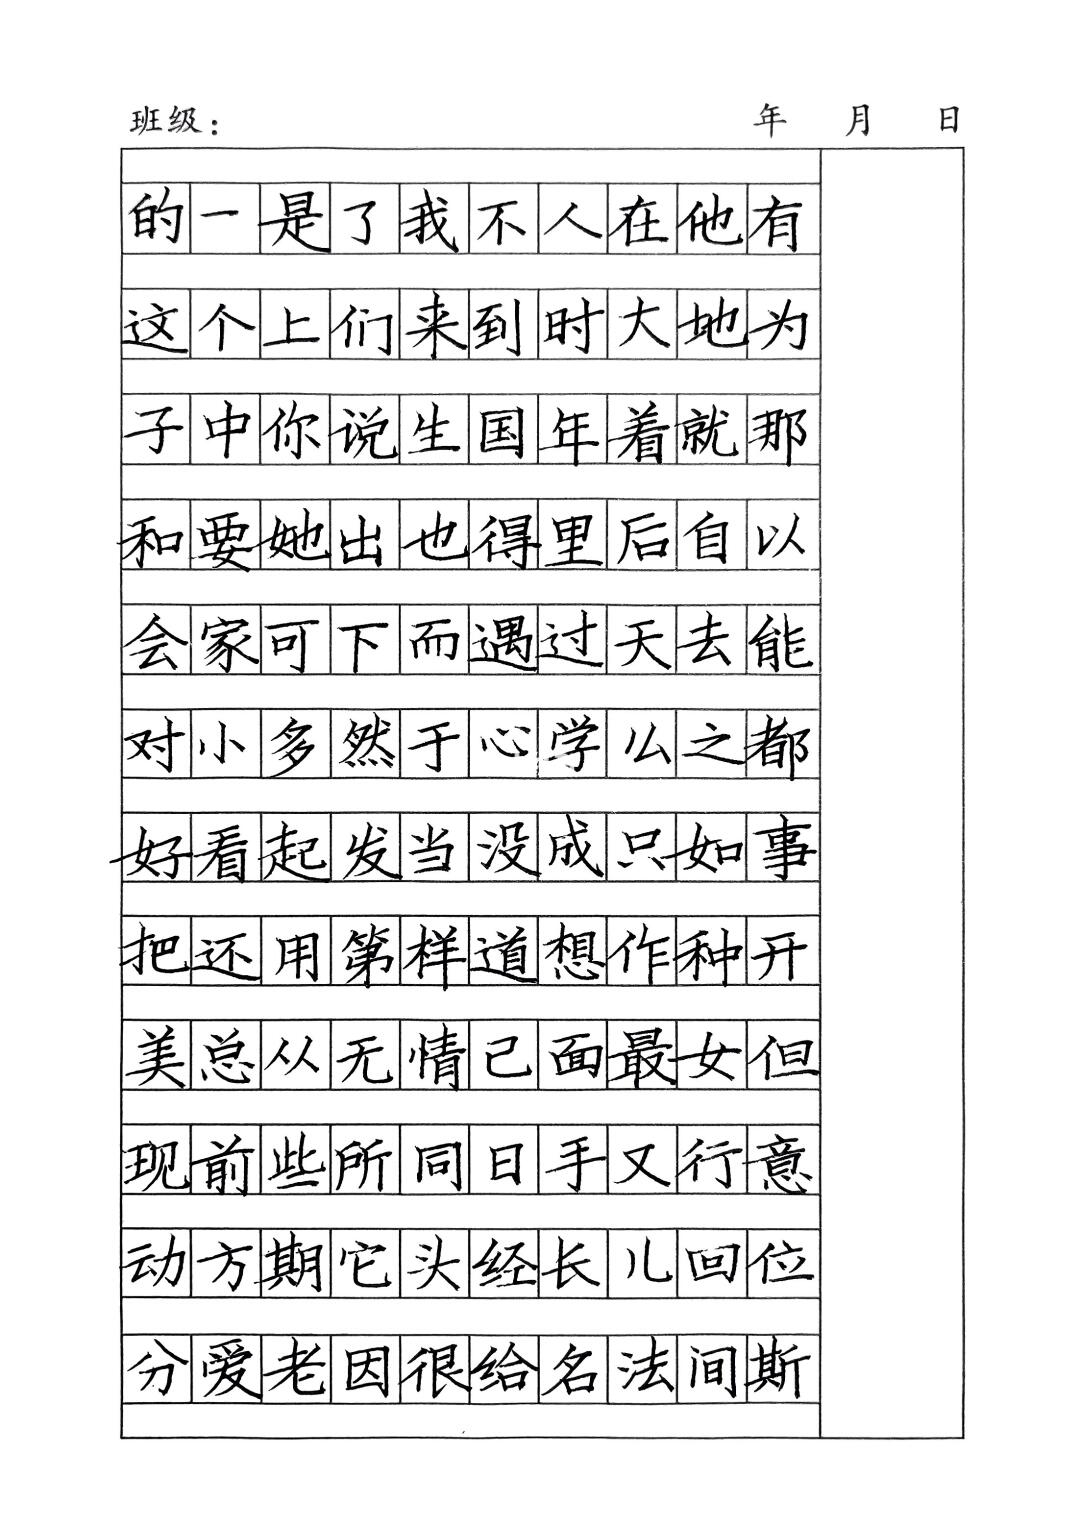 班级： 年 月 日
的一是了我不人在他有
这个上们来到时大地为
子中你说生国年着就那
和要她出也得里后自以
会家可下而遇过天去能
对小多然于心学么之都
好看起发当没成只如事
把还用第样道想作种开
美总从无情己面最女但
现前些所同日手又行意
动方期它头经长儿回位
分爱老因很给名法间斯